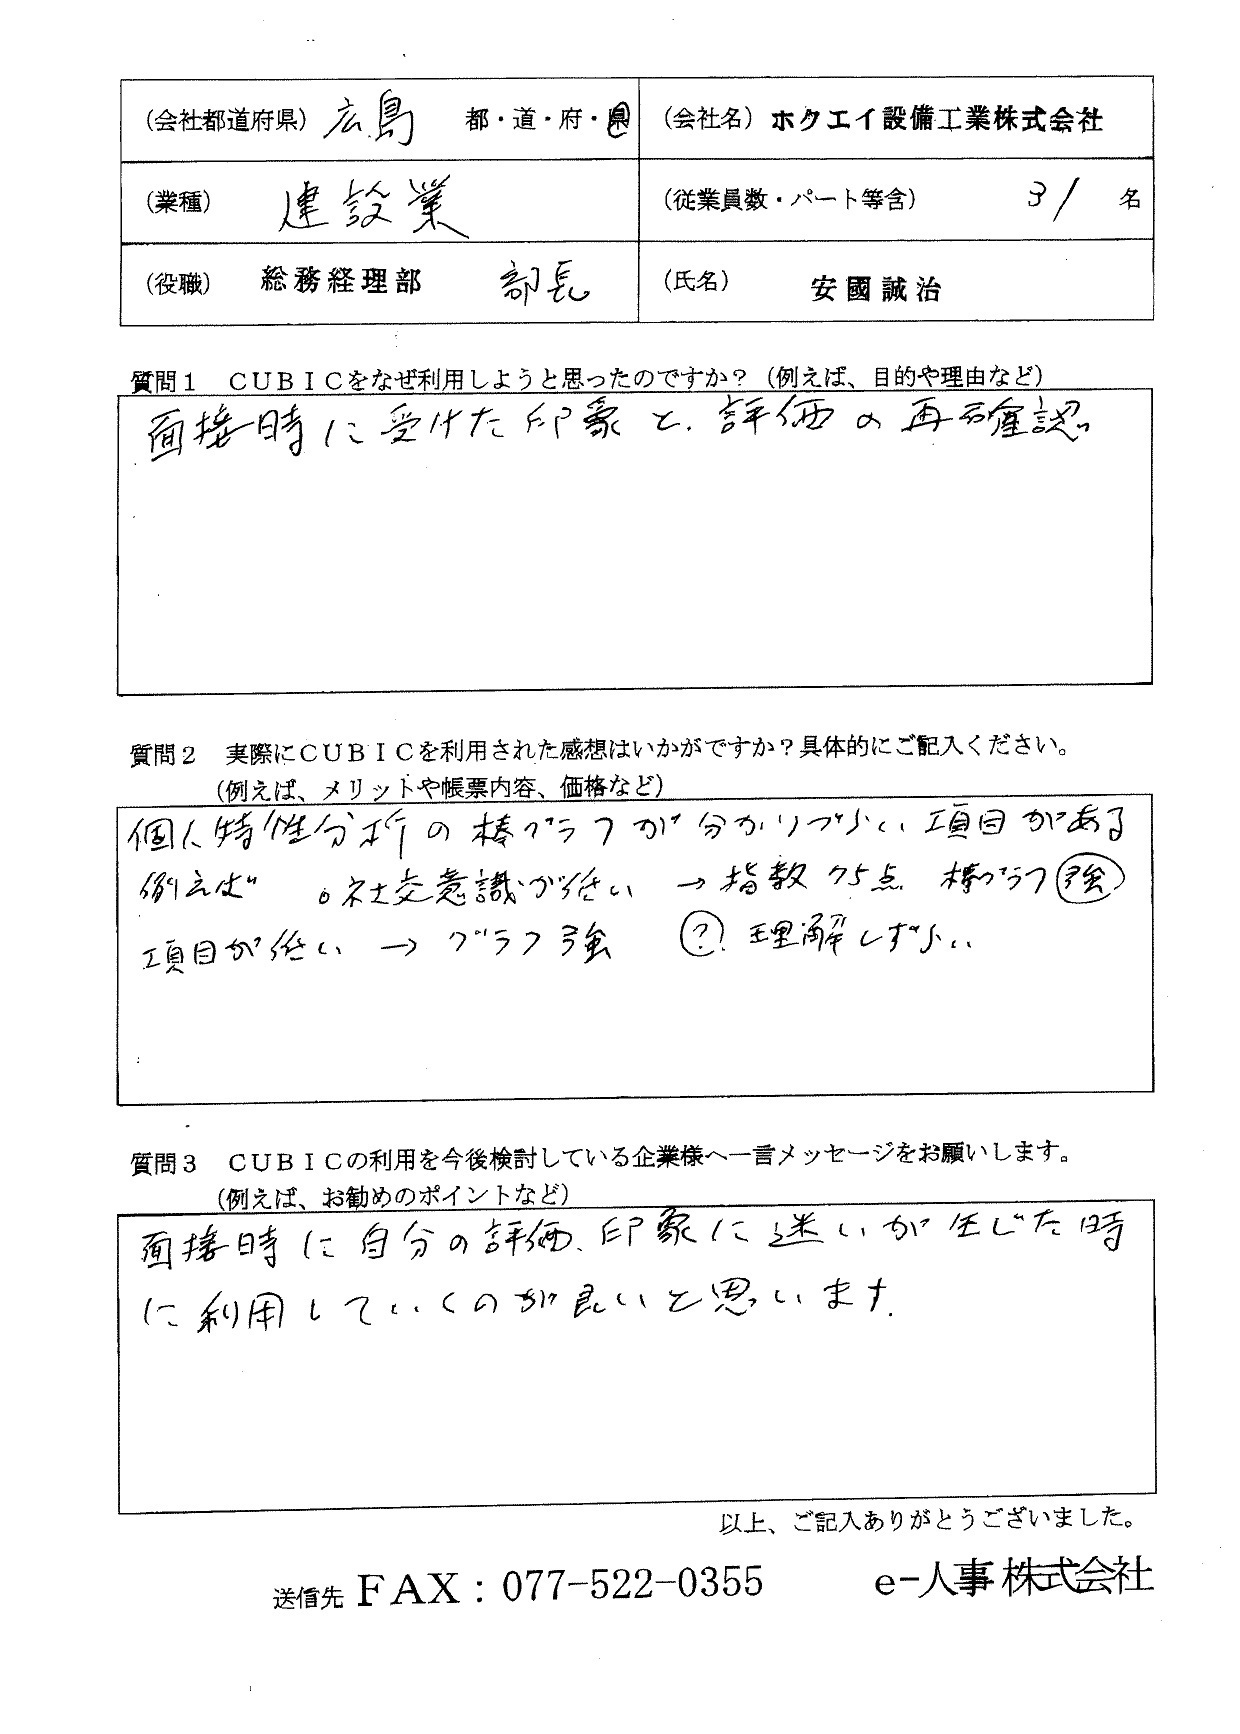 (会社都道府県) 広島 都・道・府・県 (会社名) ホクエイ設備工業株式会社
(業種) 建設業 (従業員数・パート等含) 31 名
(役職) 総務経理部 部長 (氏名) 安國誠治
質問1 CUBICをなぜ利用しようと思ったのですか？(例えば、目的や理由など)
面接時に受けた印象と、評価の再確認。
質問2 実際にCUBICを利用された感想はいかがですか？具体的にご記入ください。
(例えば、メリットや帳票内容、価格など)
個人特性分析の棒グラフが分かりづらい項目がある
例えば 。社交意識が低い → 指数75点 棒グラフ強
項目が低い → グラフ強 ? 理解しずらい
質問3 CUBICの利用を今後検討している企業様へ一言メッセージをお願いします。
(例えば、お勧めのポイントなど)
面接時に自分の評価、印象に迷いが生じた時
に利用していくのが良いと思います。
以上、ご記入ありがとうございました。
送信先 FAX：077-522-0355 e-人事株式会社